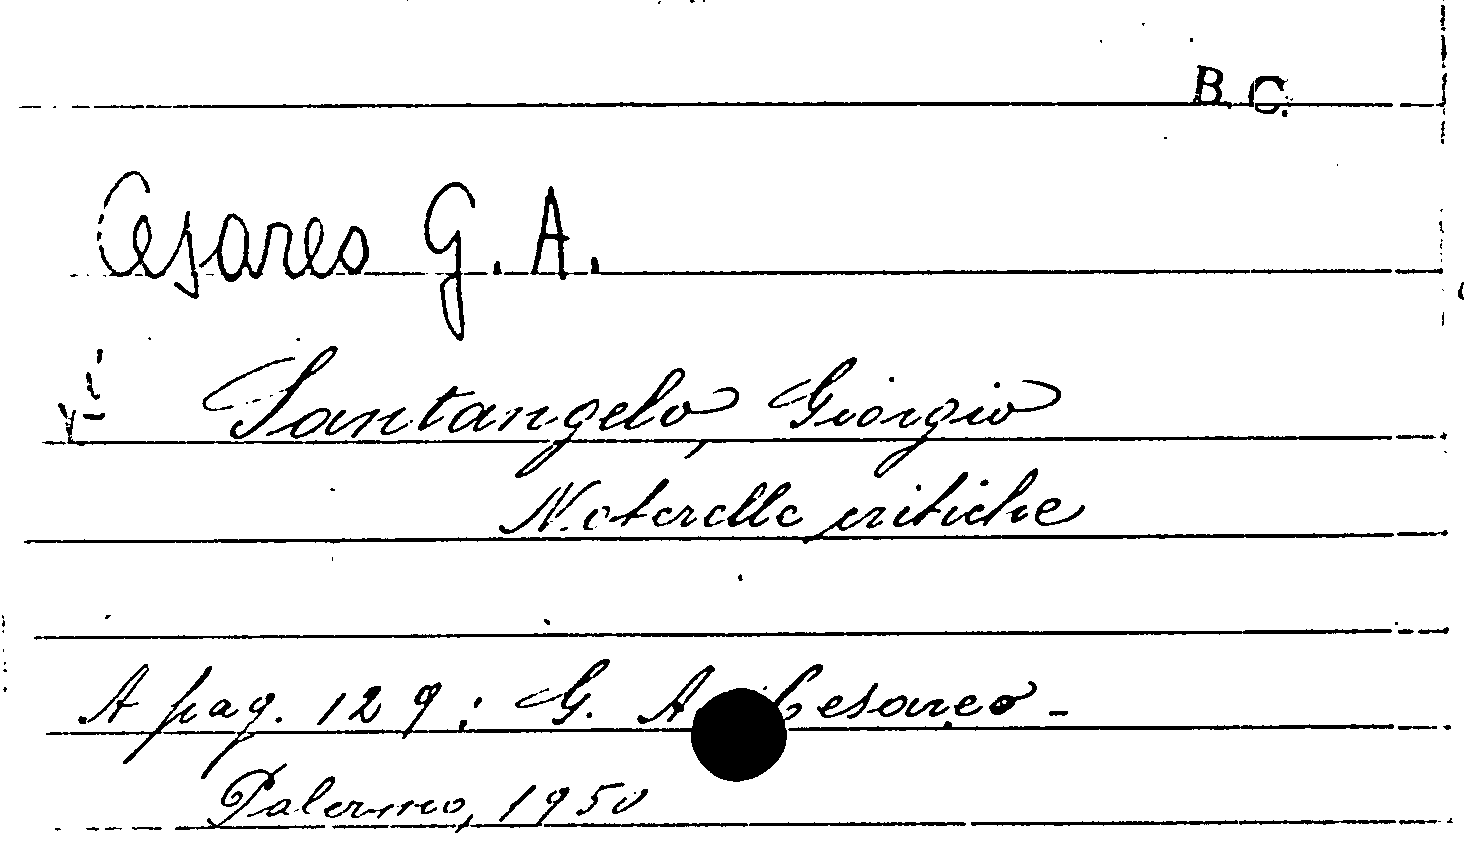 B. C.
Cesareo G. A.
Santangelo, Giorgio
Noterelle critiche
A pag. 129: G. A. Cesareo -
Palermo, 1950